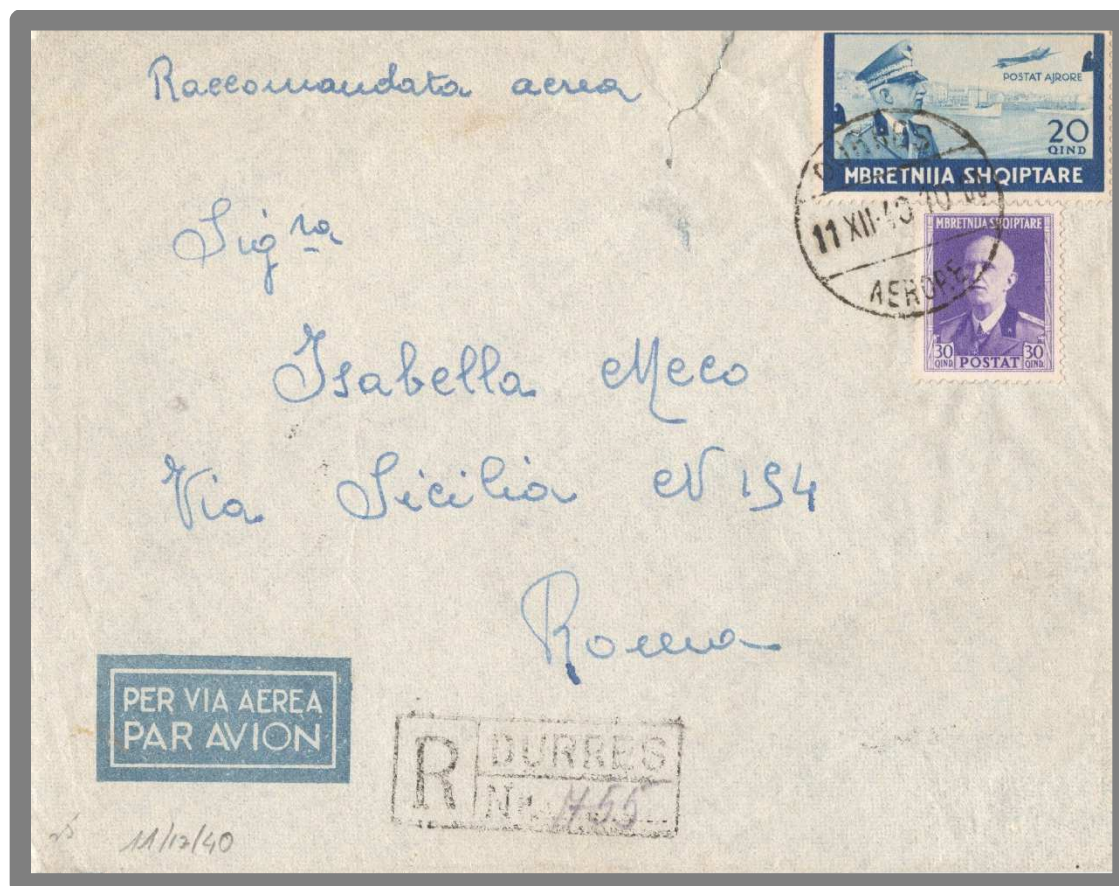 Raccomandata aerea
POSTAT AJRORE
20
QIND
MBRETNIJA SHQIPTARE
DURRËS
11 XII·40 10 00
AEROP.
MBRETNIJA SHQIPTARE
30 QIND POSTAT 30 QIND
Sig ra
Isabella Meco
Via Sicilia N 154
Roma
PER VIA AEREA
PAR AVION
R DURRES
Nr. 755
25
11/12/40